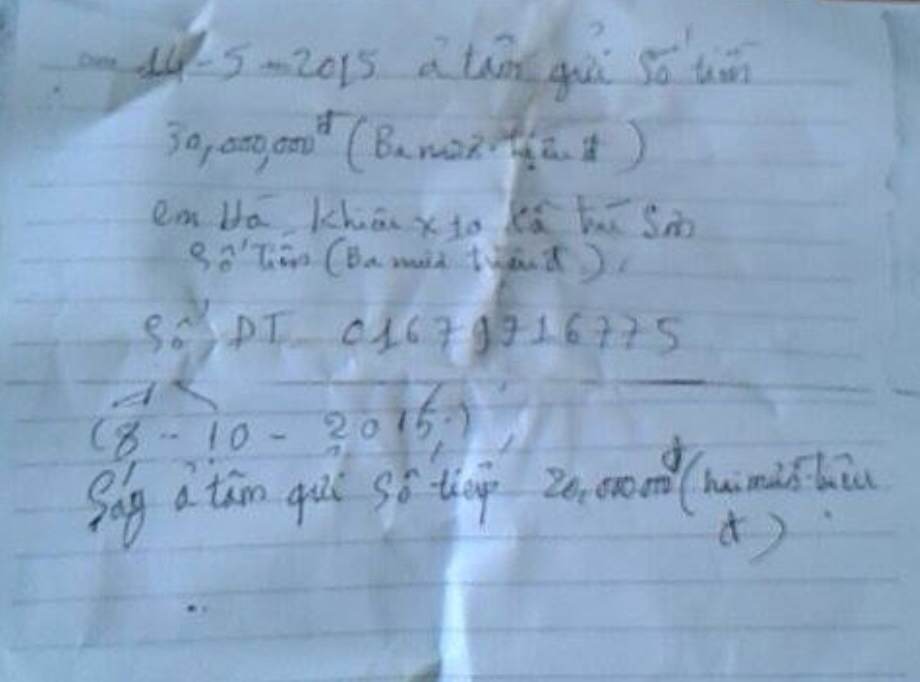 14-5-2015 a tâm gửi Số tiền
30,000,000đ (Ba mươi triệu đ)
em Hà Khiêu x 10 Sơn
Số tiền (Ba mươi triệu đ).
Số DT 01679716775
(8-10-2015)
Ság a tâm gửi Số tiếp 20,000000đ (hai mươi triệu
đ)